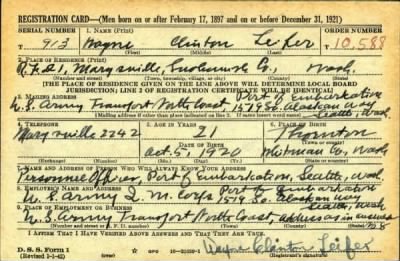 REGISTRATION CARD—(Men born on or after February 17, 1897 and on or before December 31, 1921)
SERIAL NUMBER 1. NAME (Print) ORDER NUMBER
913 Wayne Clinton Leifer T10,588
(First) (Middle) (Last)
2. PLACE OF RESIDENCE (Print)
R.F.D. 1, Marysville, Snohomish Co., Wash.
(Number and street) (Town, township, village, or city) (County) (State)
[THE PLACE OF RESIDENCE GIVEN ON THE LINE ABOVE WILL DETERMINE LOCAL BOARD
JURISDICTION; LINE 2 OF REGISTRATION CERTIFICATE WILL BE IDENTICAL]
3. MAILING ADDRESS Port of Embarkation
U.S. Army Transport North Coast 1519 So. Alaskan Way
Seattle, Wash
[Mailing address if other than place indicated on line 2. If same insert word same]
4. TELEPHONE 5. AGE IN YEARS 6. PLACE OF BIRTH
Marysville 2242 21 Thornton
DATE OF BIRTH (Town or county)
Oct. 5, 1920 Whitman Co., Wash.
(Exchange) (Number) (Mo.) (Day) (Yr.) (State or country)
7. NAME AND ADDRESS OF PERSON WHO WILL ALWAYS KNOW YOUR ADDRESS
Personnel Officer, Port of Embarkation, Seattle, Wash.
8. EMPLOYER'S NAME AND ADDRESS Port of Embarkation
U.S. Army Q.M. Corps 1519 So. Alaskan Way
Seattle, Wash
9. PLACE OF EMPLOYMENT OR BUSINESS
U.S. Army Transport North Coast, address as in answer 8
(Number and street or R. F. D. number) (Town) (County) (State)
I AFFIRM THAT I HAVE VERIFIED ABOVE ANSWERS AND THAT THEY ARE TRUE.
D. S. S. Form 1
(Revised 1-1-42) GPO Wayne Clinton Leifer
(Registrant's signature)